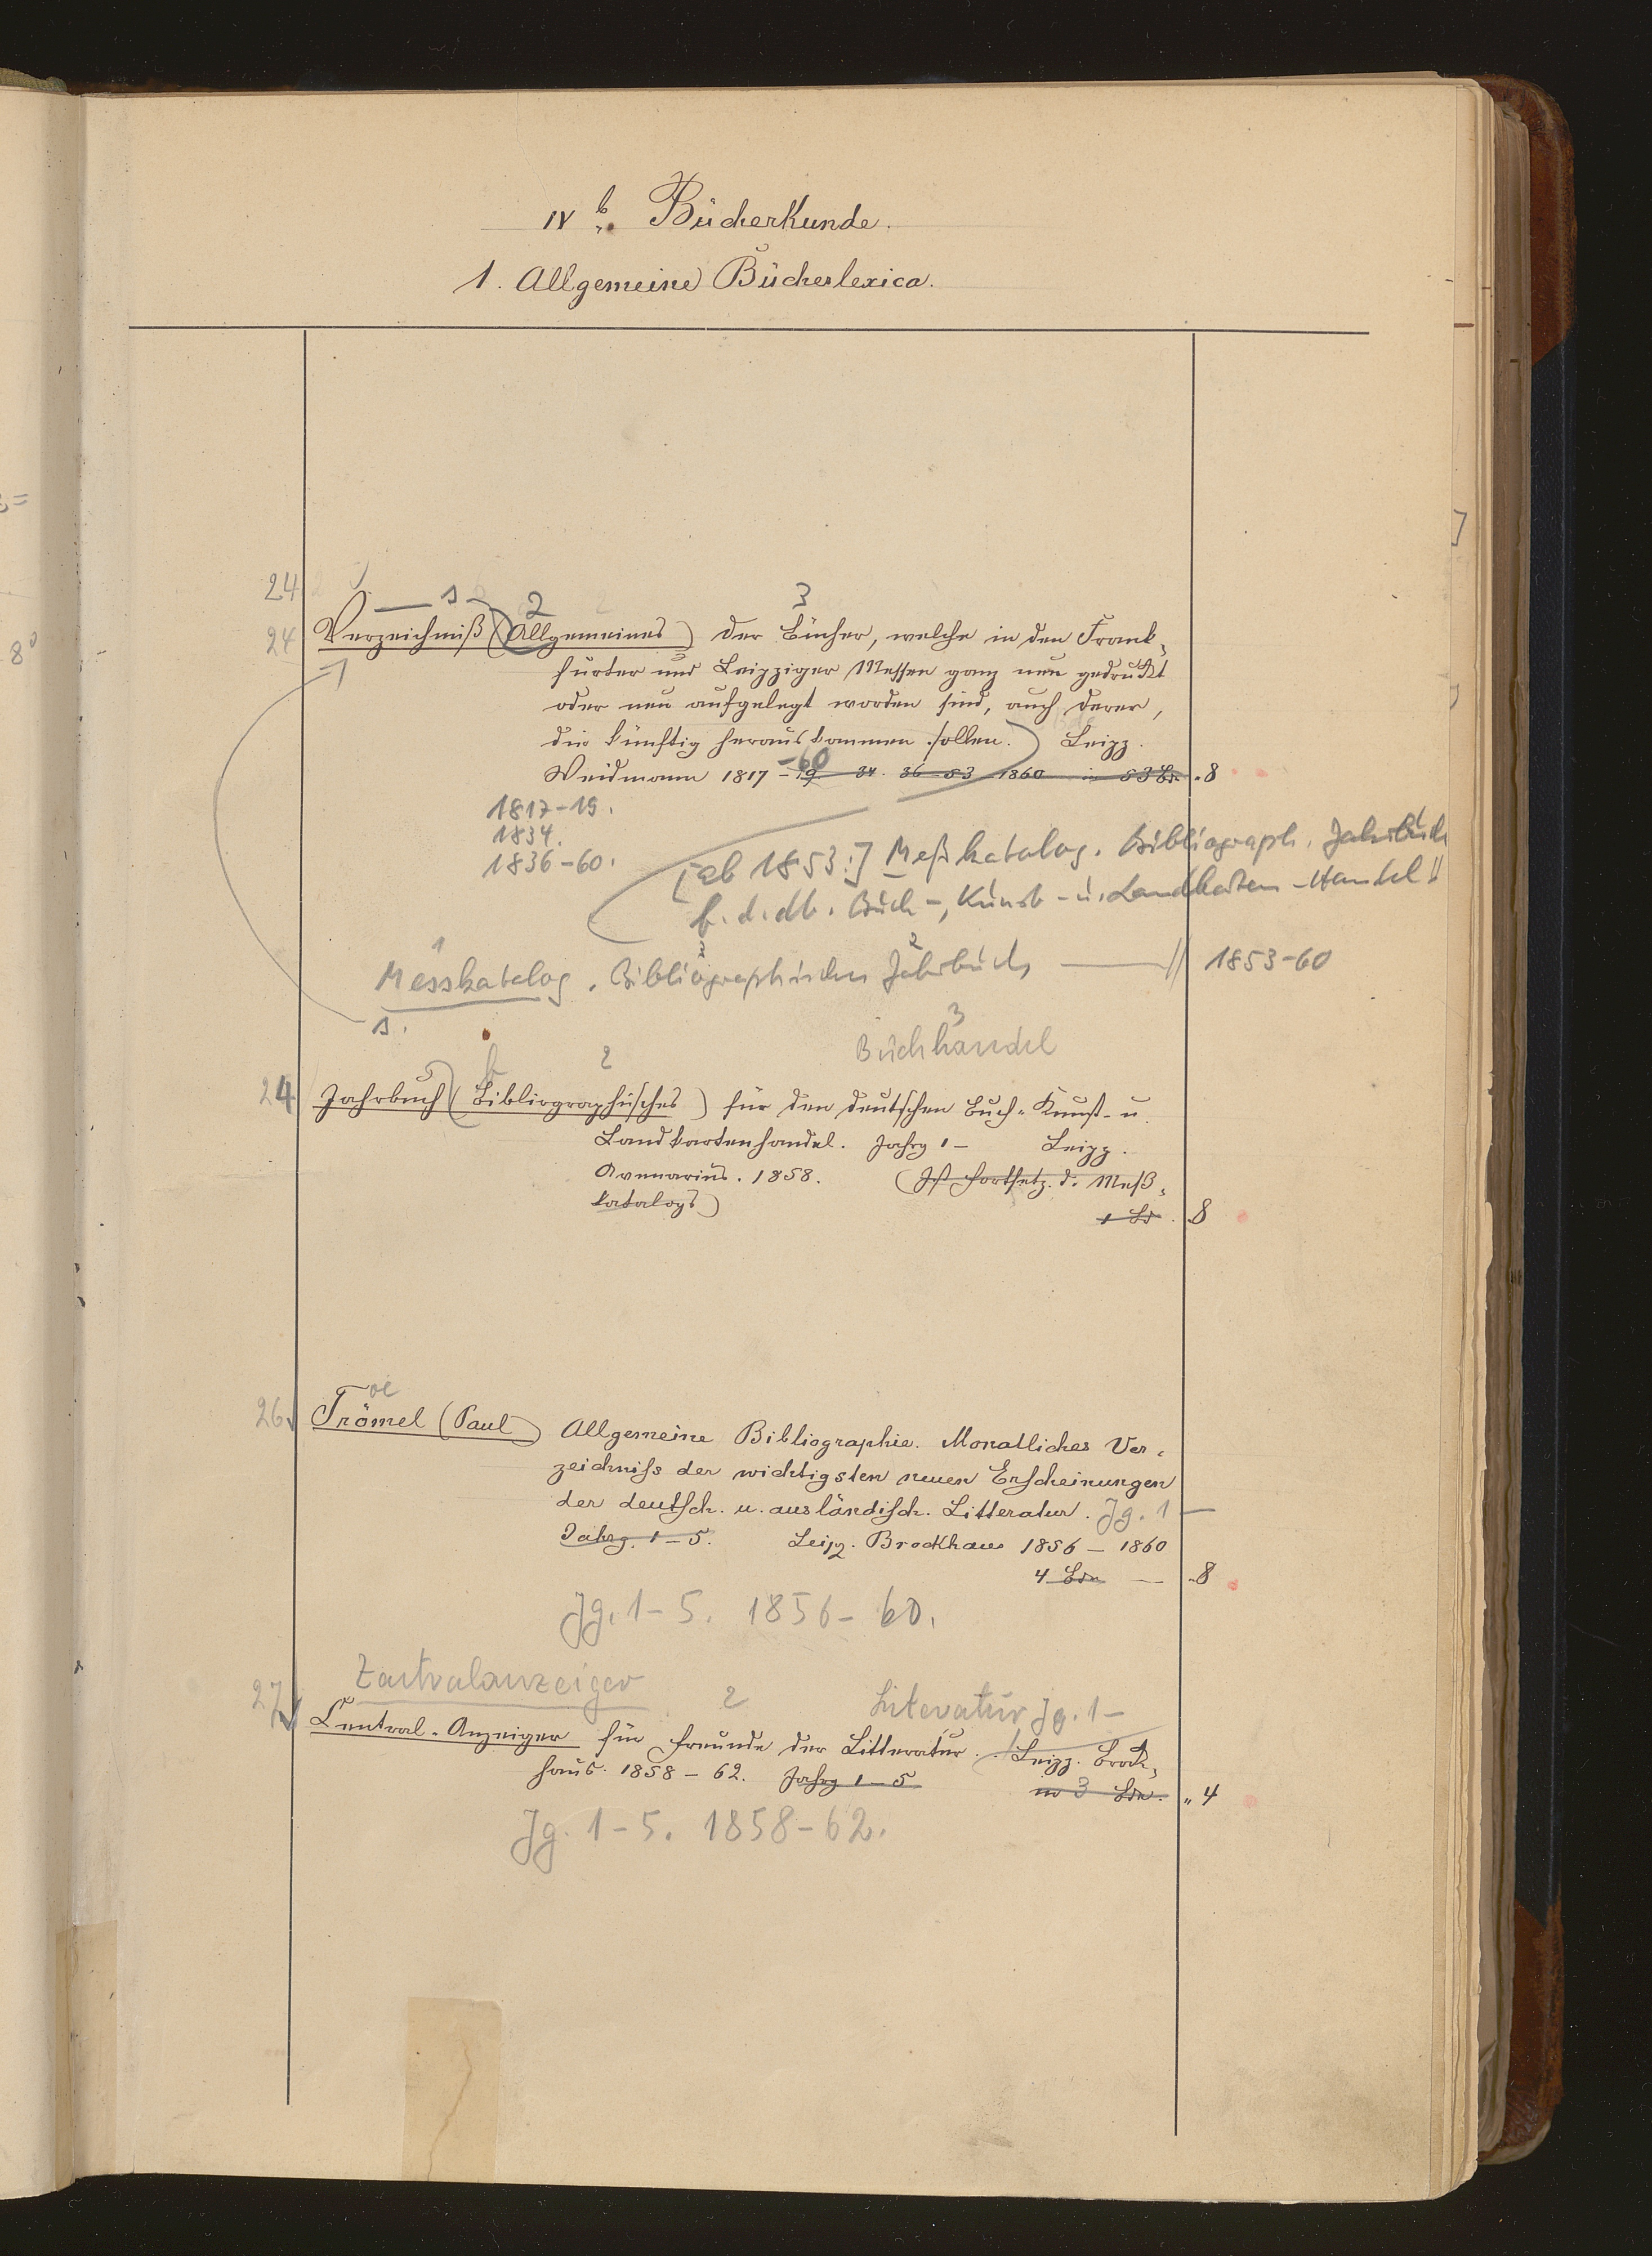 IV b. Bücherkunde.
1. Allgemeine Bücherlexica.
24
1 2 3
24 Verzeichniß (Allgemeines) der Bücher, welche in den Frank-
furter und Leipziger Messen ganz neu gedruckt
oder neu aufgelegt worden sind, auch derer,
die künftig herauskommen sollen. Leipz.
-60
Weidmann 1817 - 19 34. 36-53 1860 in 53 Bdn 8
1817-19.
1834.
1836-60.
[ab 1853:] Meßkatalog. Bibliograph. Jahrbuch
f. d. dt. Buch-, Kunst- u. Landkarten-Handel
1 3 2
Messkatalog. Bibliographisches Jahrbuch 1853-60
s.
3
2 Buchhandel
24 Jahrbuch (Bibliographisches) für den deutschen Buch- Kunst- u
Landkartenhandel. Jahrg 1 - Leipz.
Avenarius. 1858. (Ist Fortsetz. d. Meß-
katalogs)
1 Bd. 8
oe
26 Trömel (Paul) Allgemeine Bibliographie. Monatliches Ver-
zeichniss der wichtigsten neuen Erscheinungen
der deutsch. u. ausländisch. Litteratur. Jg. 1 -
Jahrg. 1-5. Leipz. Brockhaus 1856 - 1860
4 Bde 8
Jg. 1-5. 1856-60.
Zentralanzeiger 2 Literatur Jg. 1 -
27 Central-Anzeiger für Freunde der Litteratur. Leipz. Brock-
haus. 1858 - 62. Jahrg 1-5 in 3 Bdn. 4
Jg. 1-5. 1858-62.